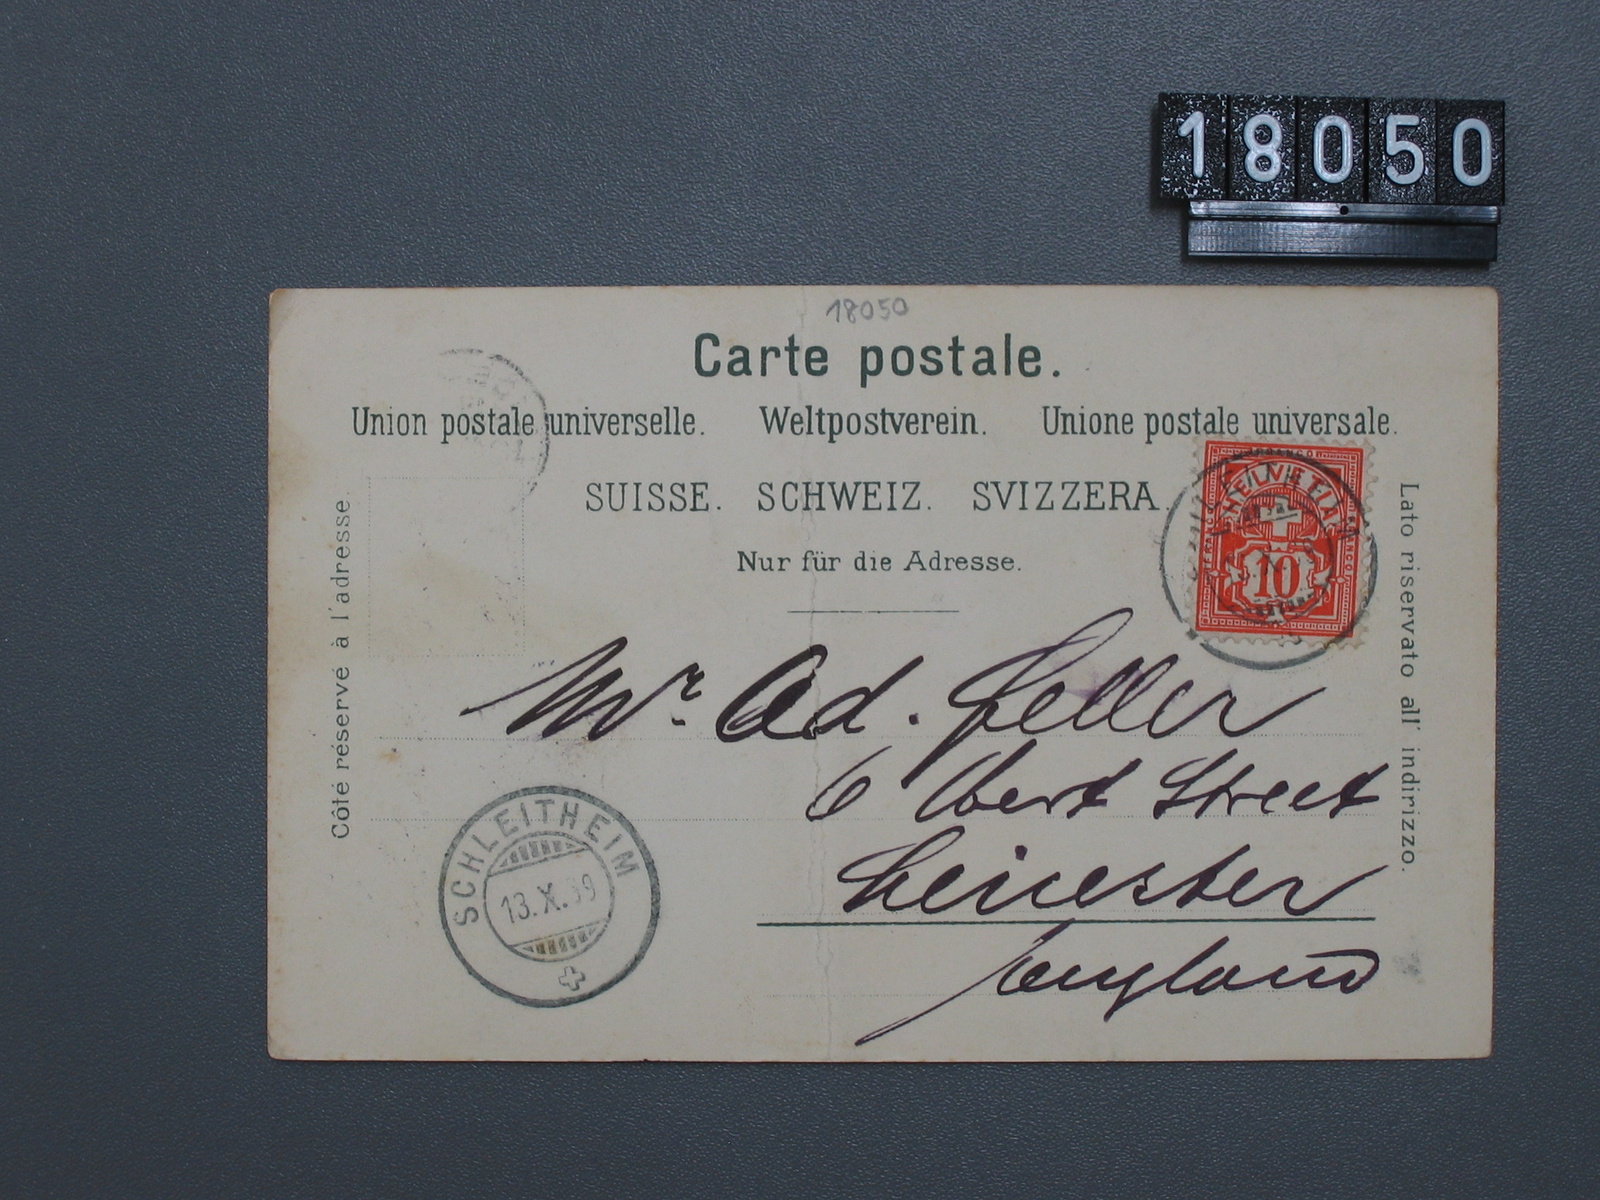 18050
18050
Carte postale.
Union postale universelle. Weltpostverein. Unione postale universale.
SUISSE. SCHWEIZ. SVIZZERA.
Nur für die Adresse.
Côté réservé à l'adresse.
Lato riservato all' indirizzo.
FRANCO
HELVETIA
10
Mr. Ad.
6 Street
Leicester
England
SCHLEITHEIM
13.X.99